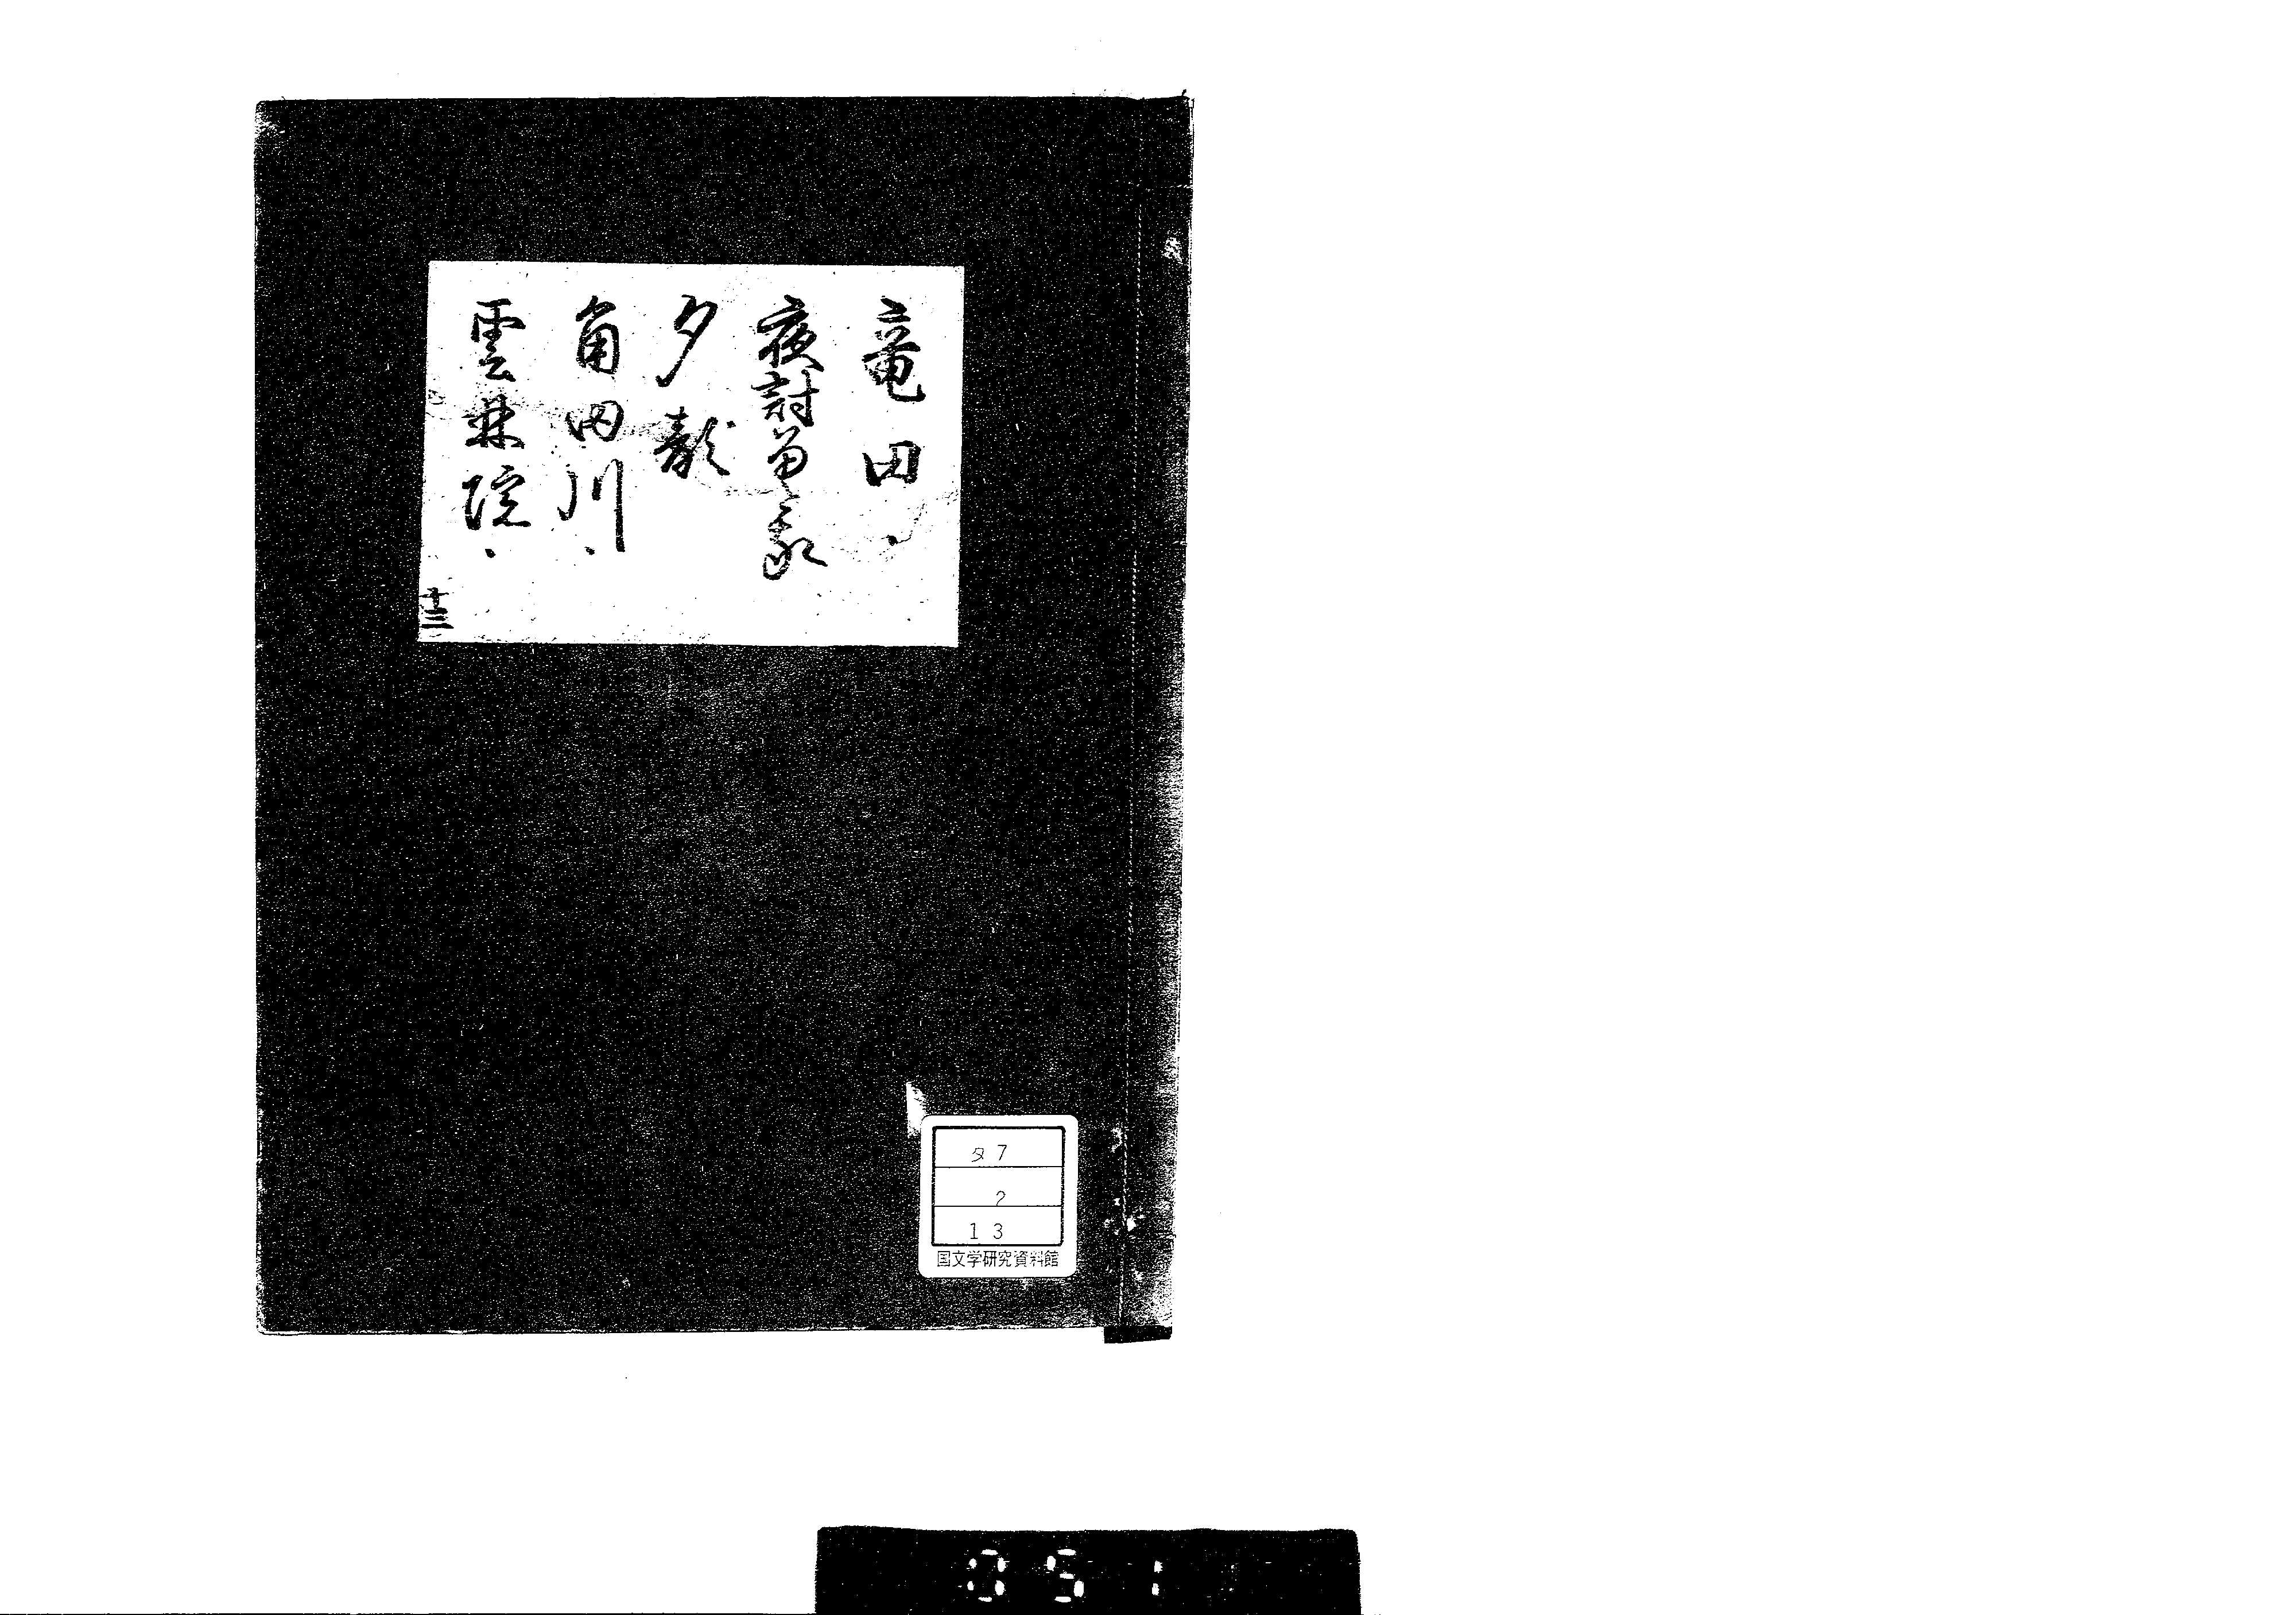 竜田・
夜討曽我
夕顔
角田川・
雲林院・
十三
タ7
2
13
国文学研究資料館
051